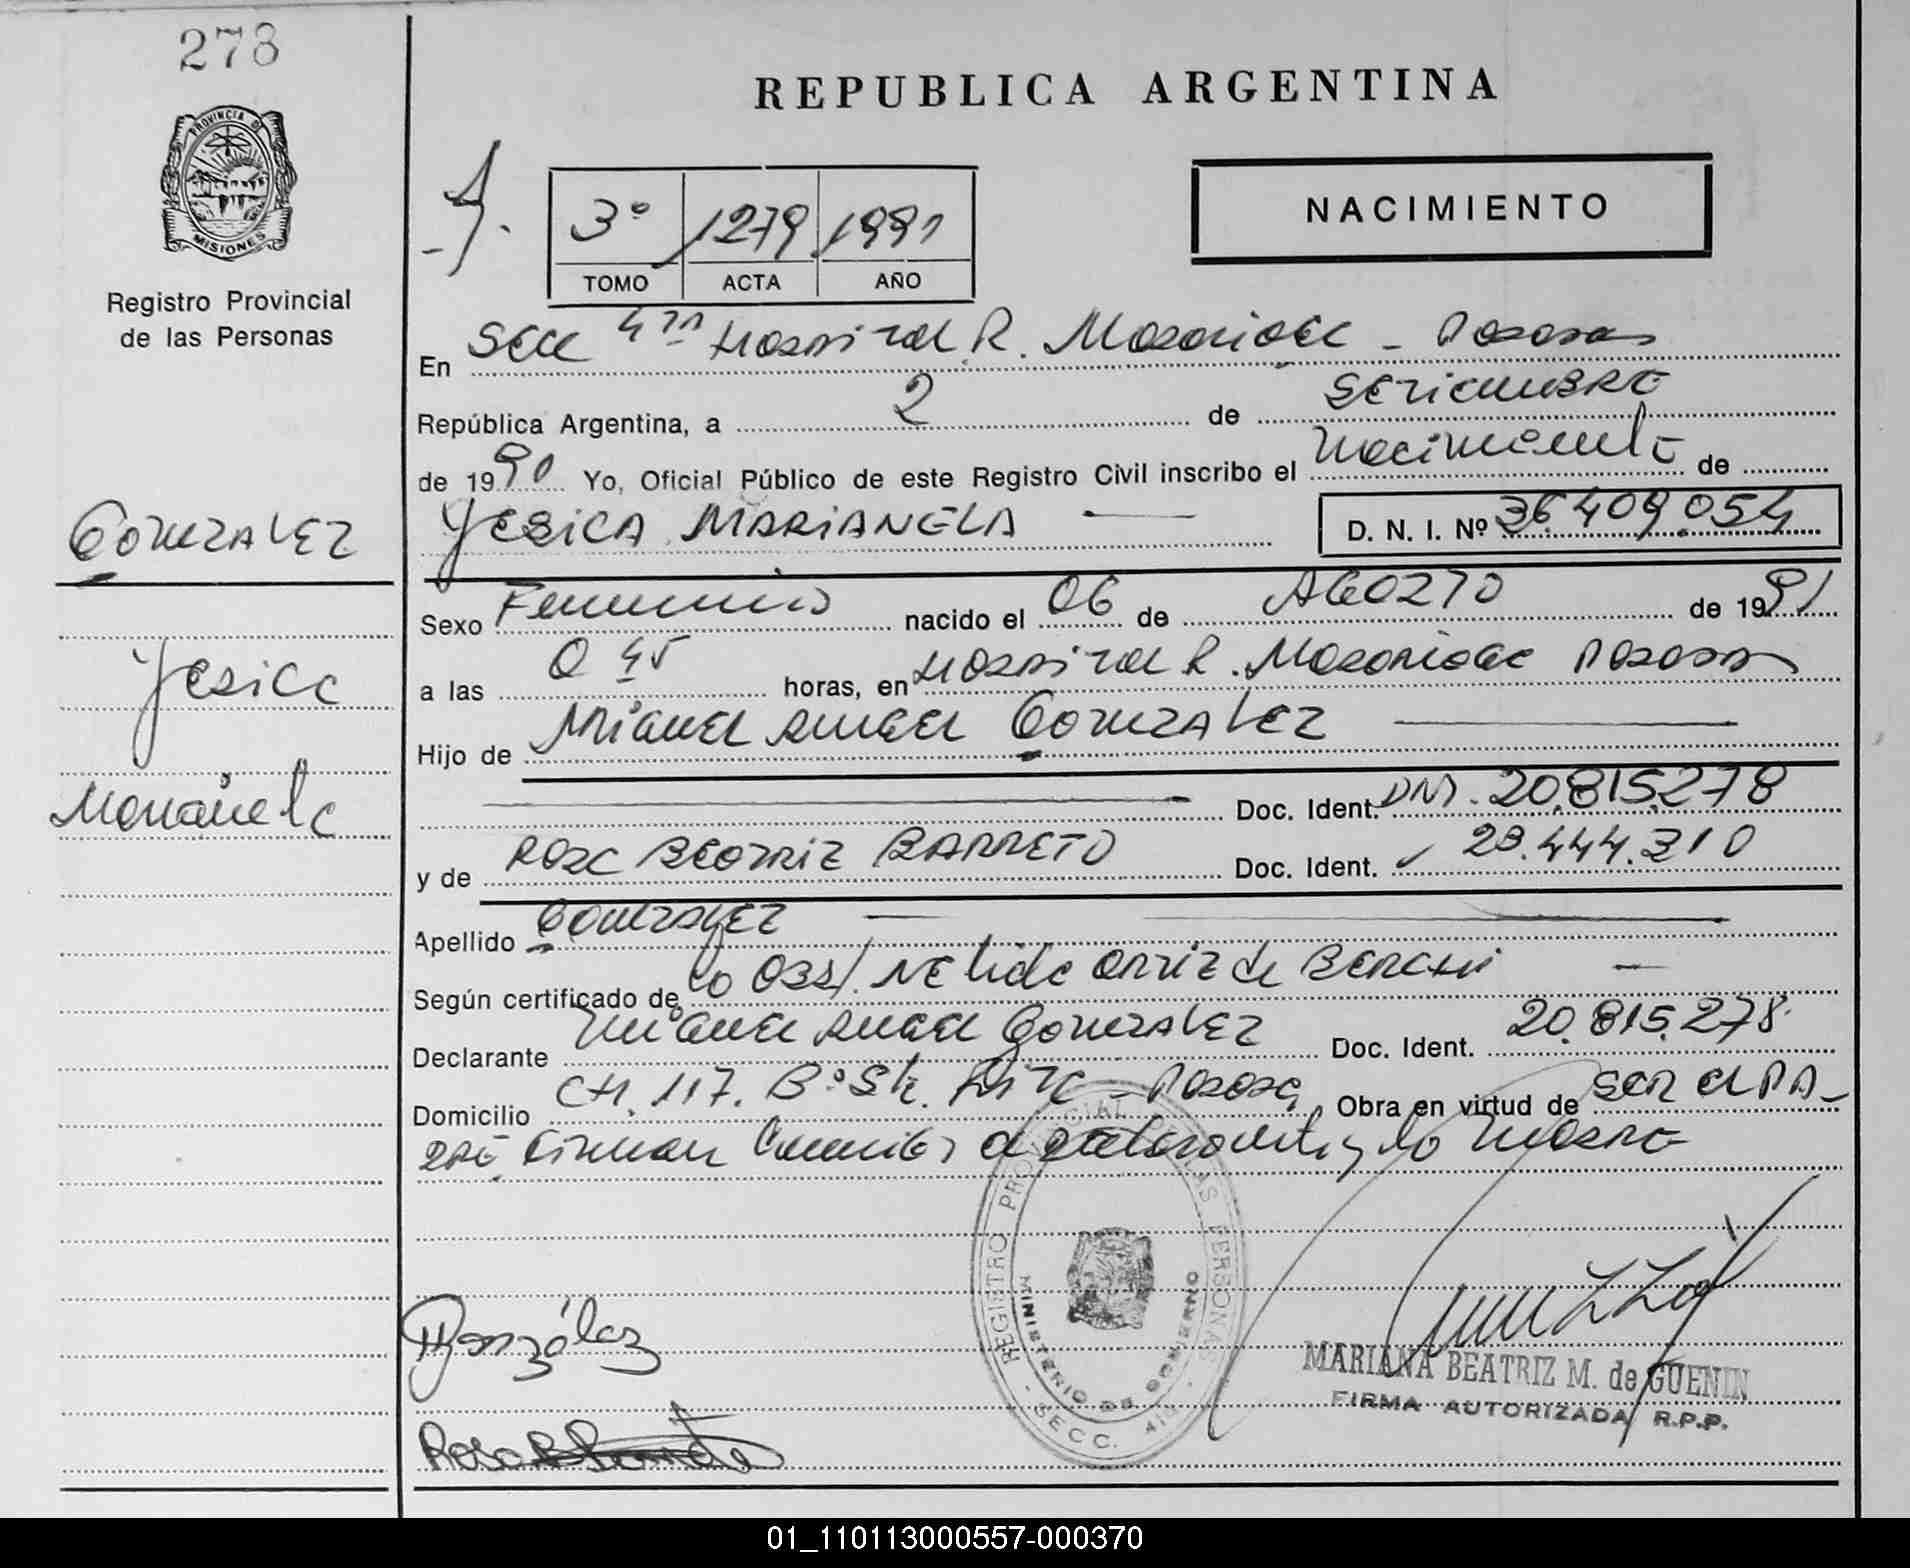 278
REPUBLICA ARGENTINA
PROVINCIA DE
MISIONES
Registro Provincial
de las Personas
NACIMIENTO
3º 1279 1991
TOMO ACTA AÑO
En Secc 4ta Hospital R. Madariaga - Posadas
República Argentina, a 2 de SETIEMBRE
de 1990 Yo, Oficial Público de este Registro Civil inscribo el Nacimiento de
GONZALEZ
YESICA MARIANELA
D. N. I. Nº 36.409.054
Sexo Femenino nacido el 06 de AGOSTO de 1991
Yesica
a las 0 45 horas, en Hospital R. Madariaga Posadas
Hijo de Miguel Angel GONZALEZ
Marianela
Doc. Ident. DNI. 20.815.278
y de Rosa Beatriz BARRETO Doc. Ident. 23.444.310
Apellido GONZALEZ
Según certificado de la Obst. Nelida Ortiz de
Declarante Miguel Angel GONZALEZ Doc. Ident. 20.815.278
Domicilio CH. 117. Bº Sta. Rita - Posadas Obra en virtud de ser el PA-
DRE. Firman el declarante y la madre
REGISTRO PROVINCIAL DE LAS PERSONAS
MINISTERIO DE GOBIERNO
SECC. 4ta
González
Rosa B
MARIANA BEATRIZ M. de GUENIN
FIRMA AUTORIZADA R.P.P.
01_110113000557-000370